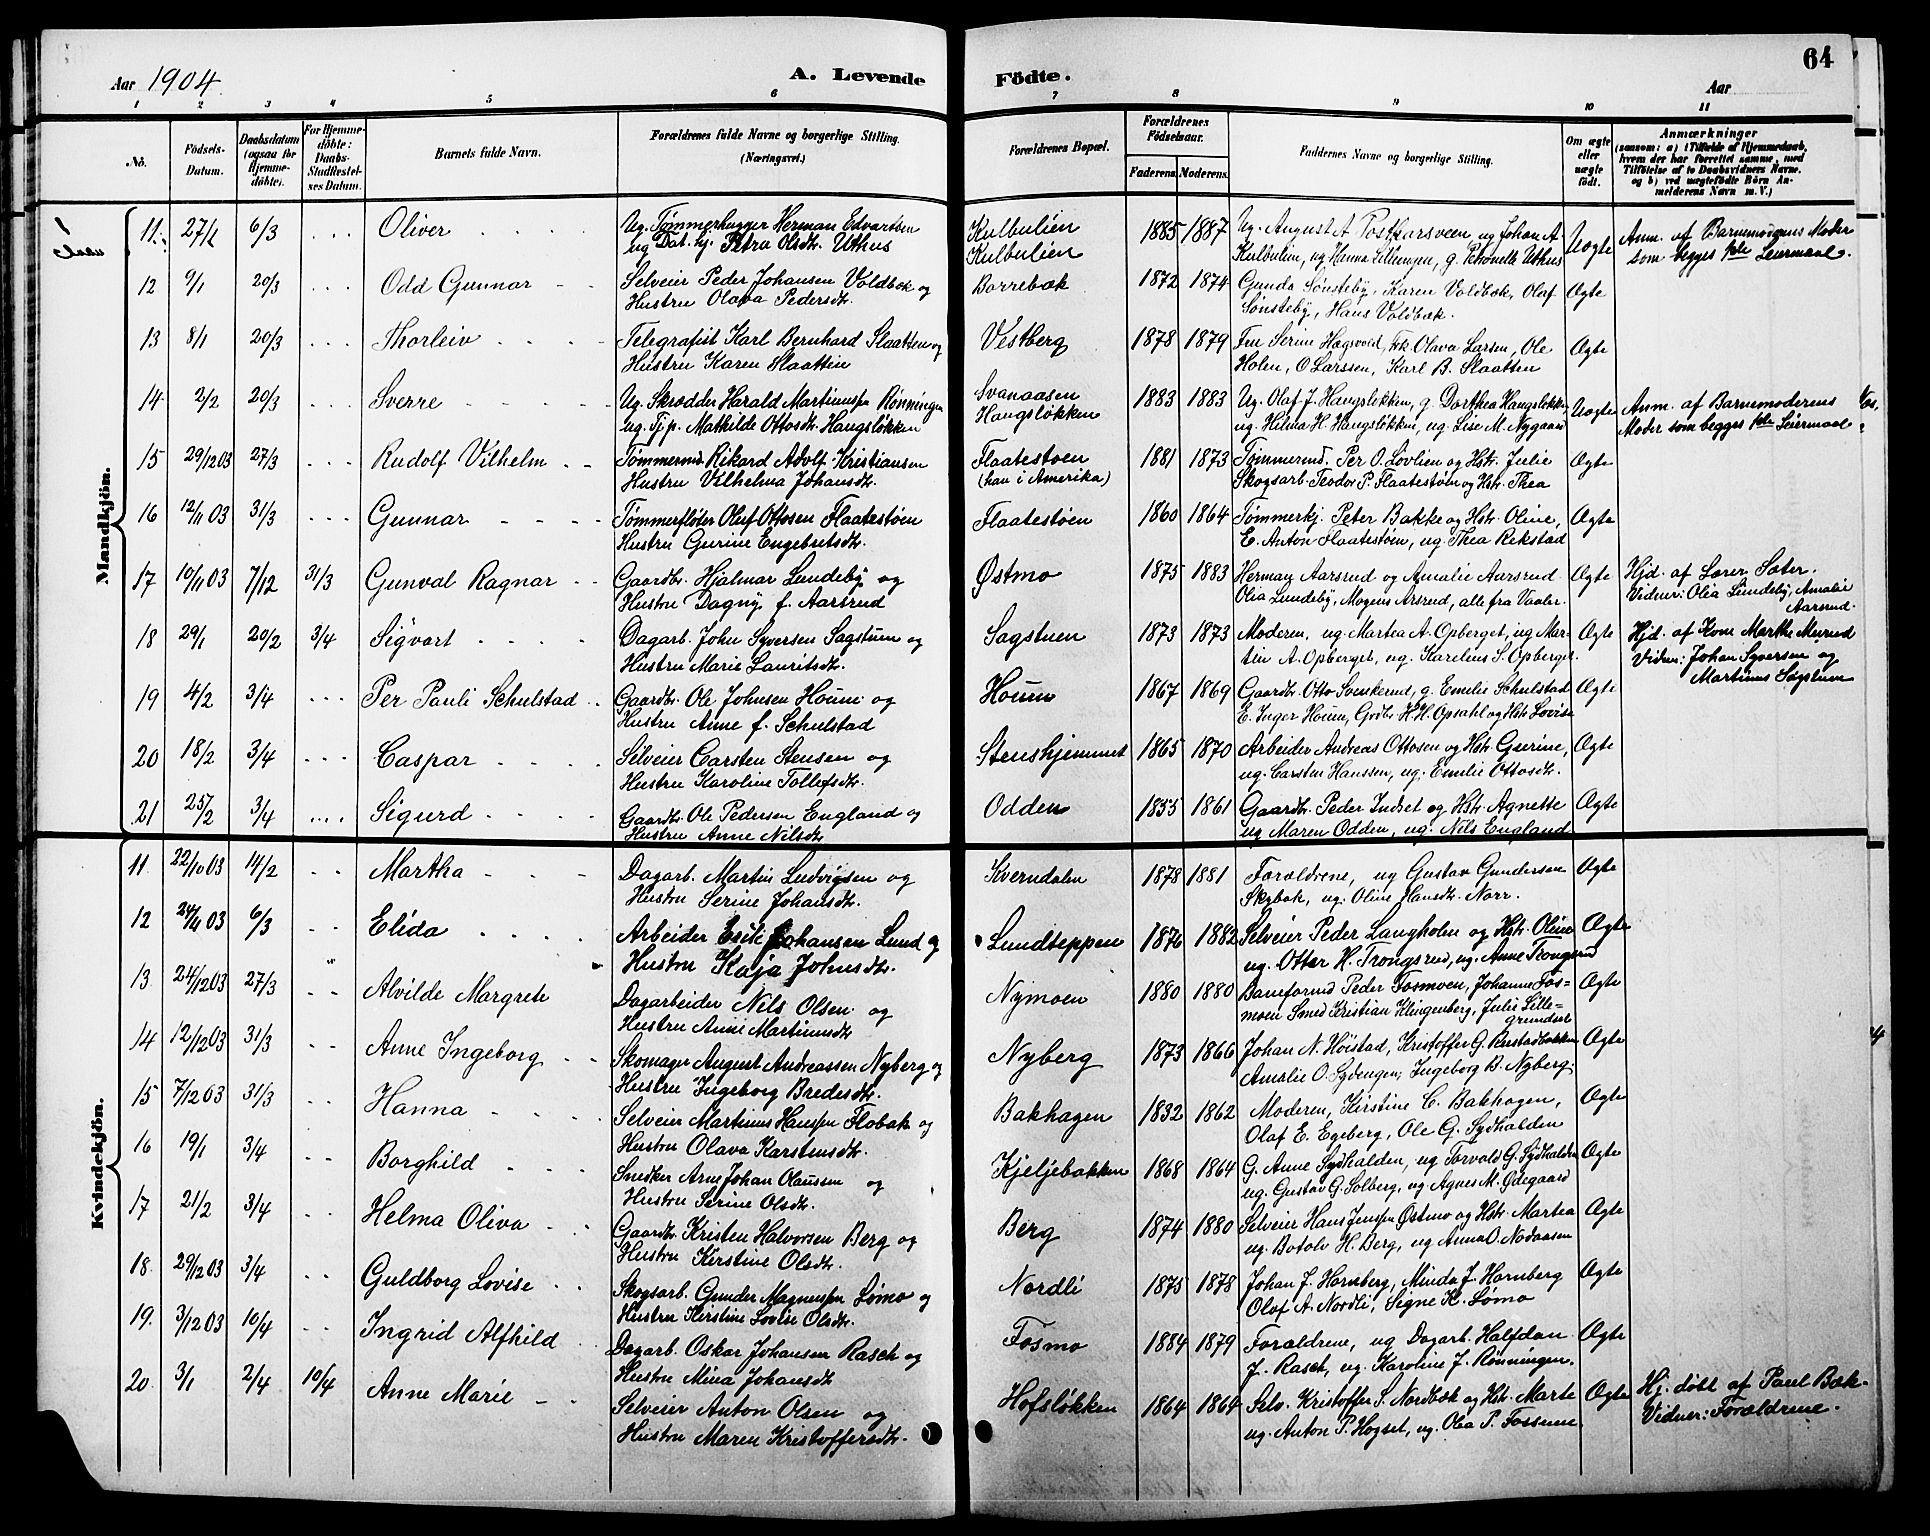 Aar 1904.
A. Levende Födte.
Aar
64
1 2 3 4 5 6 7 8 9 10 11
No.
Födsels-Datum.
Daabsdatum (ogsaa for Hjemmedöbte).
For Hjemmedöbte: Daabs-Stadfæstelses Datum.
Barnets fulde Navn.
Forældrenes fulde Navne og borgerlige Stilling. (Næringsvei.)
Forældrenes Bopæl.
Forældrenes Födselsaar.
Faderens. Moderens.
Faddernes Navne og borgerlige Stilling.
Om ægte eller uægte födt.
Anmærkninger
(saasom: a) i Tilfælde af Hjemmedaab, hvem der har forrettet samme, med Tilföielse af to Daabsvidners Navne. og b) ved uægtefödte Börn Anmelderens Navn m. V.)
Mandkjön.
11. 27/1 6/3 Oliver Ug. Tømmerhugger Herman Edvartsen Kulbulien 1885 1887 Ug. August A Postkarsveen ug Johan A. Uægte Anm. af Barnemoderens Moder
ug Dat. hj. Petra Olsdt. Uthus Kulbulien Kulbulien, ug Hanna Lillengen, g. Petronelle Uthus som begges 1ste Leiermaal.
12 9/1 20/3 Odd Gunnar Selveier Peder Johansen Voldbæk og Borrebæk 1872 1874 Gunda Sønsteby, Karen Voldbæk, Olaf Ægte
Hustru Olava Pedersdt. Sønsteby, Hans Voldbæk.
13 8/1 20/3 Thorleiv Telegrafist Karl Bernhard Slaatten og Vestberg 1878 1879 Fru Serine Hagsvold, Frk. Olava Larsen, Ole Ægte
Hustru Karen Slaatten Holen, O Larssen, Karl B. Slaatten
14 2/2 20/3 Sverre Ug. Skrædder Harald Martinussen Rønningen Svanaasen 1883 1883 Ug. Olaf J. Haugsløkken, g. Dorthea Haugsløkken Uægte Anm. af Barnemoderens
ug. Tj. p. Mathilde Ottosdt. Haugsløkken Haugsløkken ug. Hilma H. Haugsløkken, ug. Lise M. Nygaard Moder som begges 1ste Leiermaal
15 29/12 03 27/3 Rudolf Vilhelm Tømmermd. Rikard Adolf Kristiansen Flaatestøen 1881 1873 Tømmermd. Per O. Løvlien og Hstr. Julie Ægte
Hustru Vilhelma Johansdt. (han i Amerika) Skogsarb. Teodor P. Flaatestøen og Hstr. Thea
16 12/11 03 31/3 Gunnar Tømmerfløter Oluf Ottosen Flaatestøen Flaatestøen 1860 1864 Tømmerkj. Peter Bakke og Hstr. Oline, Ægte
Hustru Gurine Engebretsdt. E. Anton Flaatestøen, ug. Thea Rekstad
17 10/11 03 7/12 31/3 Gunval Ragnar Gaardbr. Hjalmar Lundeby og Østmo 1875 1883 Herman Aarsrud og Amalie Aarsrud Ægte Hjd. af Lærer Sæter.
Hustru Dagny f. Aarsrud Olea Lundeby, Mogens Arsrud, alle fra Vaaler. Vidner: Olea Lundeby, Amalie Aarsrud.
18 29/1 20/2 3/4 Sigvart Dagarb. John Syversen Sagstuen og Sagstuen 1873 1873 Moderen, ug. Martea A. Opberget, ug Mar- Ægte Hjd. af Kone Marthe Murud
Hustru Marie Lauritsdt. tin A. Opberget, ug. Karelius S. Opberget. Vidner: Johan Syversen og
Martinus Sagstuen
19 4/2 3/4 Per Pauli Schulstad Gaardbr. Ole Johnsen Houm og Houm 1867 1869 Gaardbr. Otto Svenkerud, g. Emilie Schulstad Ægte
Hustru Anne f. Schulstad E. Inger Houm, Grdbr. H. H. Opsahl og Hstr. Lovise
20 18/2 3/4 Caspar Selveier Carsten Stensen og Stenshjemmet 1865 1870 Arbeider Andreas Ottosen og Hstr. Guerine, Ægte
Hustru Karoline Tollefsdt. ug. Carsten Hanssen, ug. Emilie Ottosdt.
21 25/2 3/4 Sigurd Gaardbr. Ole Pedersen England og Odden 1855 1861 Gaardbr. Peder Indset og Hstr. Agnette Ægte
Hustru Anne Nilsdt ug Maren Odden, ug. Nils England
Kvindekjön.
11. 22/10 03 14/2 Martha Dagarb. Martin Ludvigsen og Kverndalen 1878 1881 Forældrene, ug Gustav Gundersen Ægte
Hustru Serine Johansdt. Skybak, ug. Oline Hansdt. Norr.
12 24/11 03 6/3 Elida Arbeider Johansen Lund og Lundteppen 1876 1882 Selveier Peder Langholm og Hstr. Oline Ægte
Hustru Kaja Johnsdt. ug. Ottar H. Trongsrud, ug. Anne Trongsrud
13 24/12 03 27/3 Alvilde Margrete Dagarbeider Nils Olsen og Nymoen 1880 1880 Baneformd Peder Fosmoen, Johanne Fos- Ægte
Hustru Anne Martinusdt moen Smed Kristian Klingenberg, Julie Lille-
grundset
14 12/12 03 31/3 Anne Ingeborg Skomager August Andreassen Nyberg og Nyberg 1873 1866 Johan N. Høistad, Kristoffer G. Rustadbakken Ægte
Hustru Ingeborg Bredesdt. Amalie O. Sydengen, Ingeborg B. Nyberg.
15 7/12 03 31/3 Hanna Selveier Martinus Hanssen Flobak og Bakhagen 1832 1862 Moderen, Kirstine C. Bakhagen, Ægte
Hustru Olava Karstensdt. Olaf E. Egeberg, Ole G. Sydhalden
16 19/1 3/4 Borghild Snedker Arne Johan Olaussen og Kjeljebakken 1868 1864 G. Anne Sydhalden, ug Torvald G. Sydhalden Ægte
Hustru Serine Olsdt. ug. Gustav G. Solberg, ug Agnes M. Ødegaard
17 21/2 3/4 Helma Oliva Gaardbr. Kristen Halvorsen Berg og Berg 1874 1880 Selveier Hans Jenssen Østmo og Hstr. Martea Ægte
Hustru Kirstine Olsdt. ug. Botolv H. Berg, ug Anna O. Nodaasen
18. 29/12 03 3/4 Guldborg Lovise Skogsarb. Gunder Magnussen Lømo og Nordli 1875 1878 Johan J. Hornberg, Minda J. Hornberg Ægte
Hustru Kirstine Lovise Olsdt. Olaf A. Nordli, Signe K. Lømo
19. 3/12 03 10/4 Ingrid Alfhild Dagarb. Oskar Johansen Rasch og Fosmo 1884 1879 Forældrene, ug Dagarb. Halfdan Ægte
Hustru Mina Johansdt J. Rasch, ug. Karoline J. Rønningen.
20 3/1 2/4 10/4 Anne Marie Selveier Anton Olsen og Hofsløkken 1864 1864 Selv. Kristoffer S. Nordbæk og Hstr. Marte Ægte Hj. døbt af Paul Bæk-
Hustru Maren Kristoffersdt. ug. Anton P. Hogset, ug. Olea P. Fossum Vidner: Forældrene.